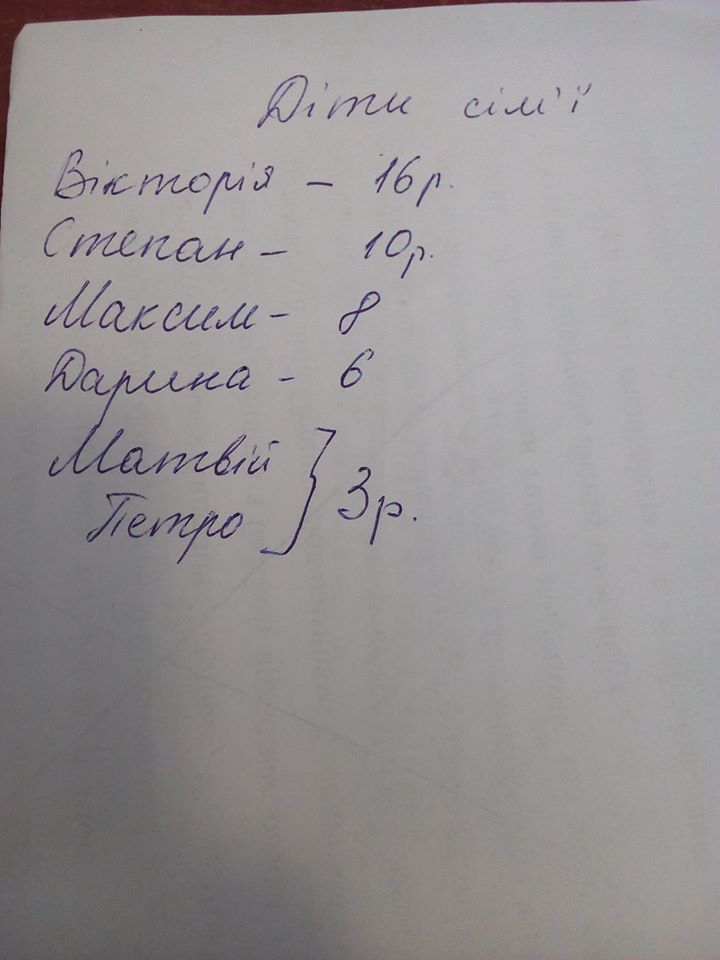 Діти сім'ї
Вікторія – 16р.
Степан – 10р.
Максим – 8
Дарина – 6
Матвій
Петро } 3р.